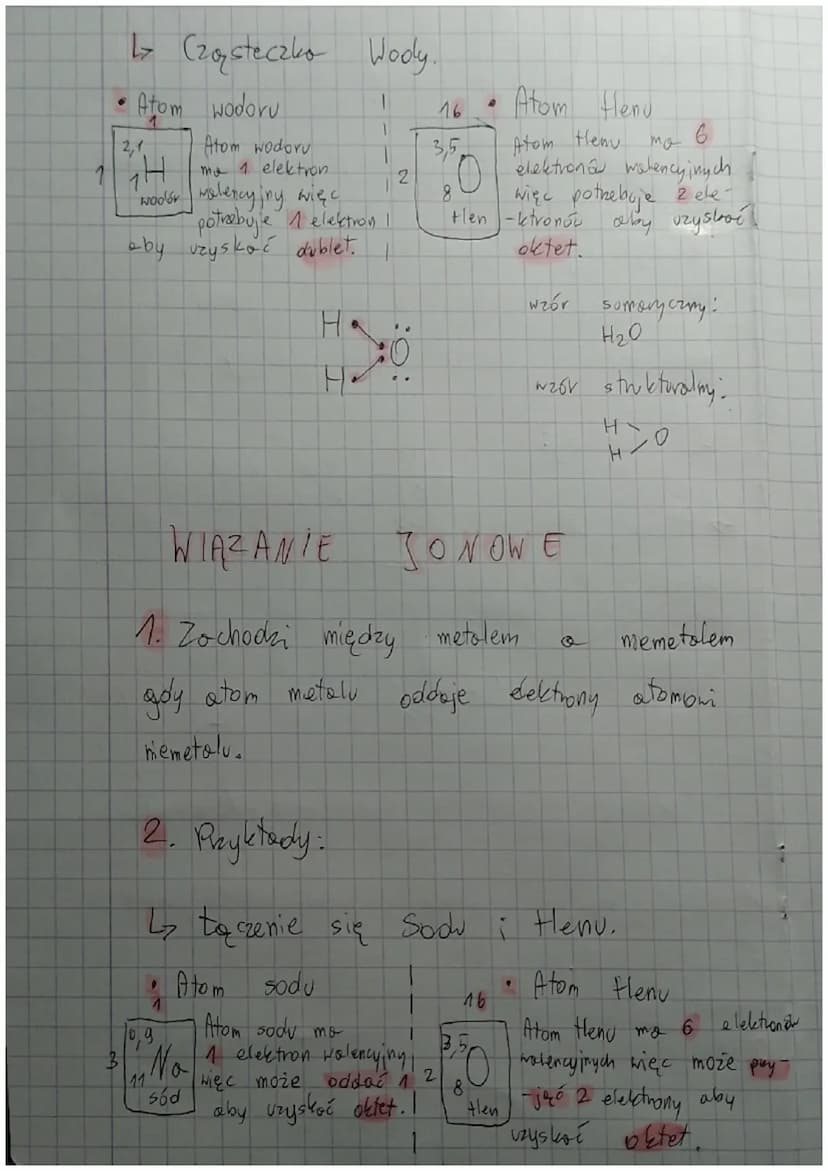 ↳ Cząsteczka Wody.
• Atom wodoru
1
1
2,1
1H
wodór
Atom wodoru
ma 1 elektron
walencyjny więc
potrzebuje 1 elektron
aby uzyskać dublet.
16 • Atom tlenu
2
3,5
O
8
tlen
Atom tlenu ma 6
elektronów walencyjnych
więc potrzebuje 2 ele-
-ktronów aby uzyskać
oktet.
H
O
H
wzór sumaryczny:
H2O
wzór strukturalny:
H
O
H
WIĄZANIE JONOWE
1. Zachodzi między metalem a niemetalem
gdy atom metalu oddaje elektrony atomowi
niemetalu.
2. Przykłady:
↳ Łączenie się Sodu i tlenu.
• Atom sodu
1
3
0,9
Na
11
sód
Atom sodu ma
1 elektron walencyjny
więc może oddać 1
aby uzyskać oktet.
16 • Atom tlenu
2
3,5
O
8
tlen
Atom tlenu ma 6 elektronów
walencyjnych więc może przy-
-jąć 2 elektrony aby
uzyskać oktet.